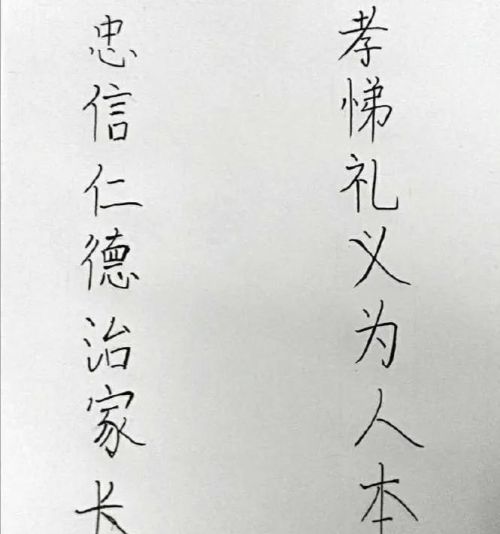 孝悌礼义为人本
忠信仁德治家长